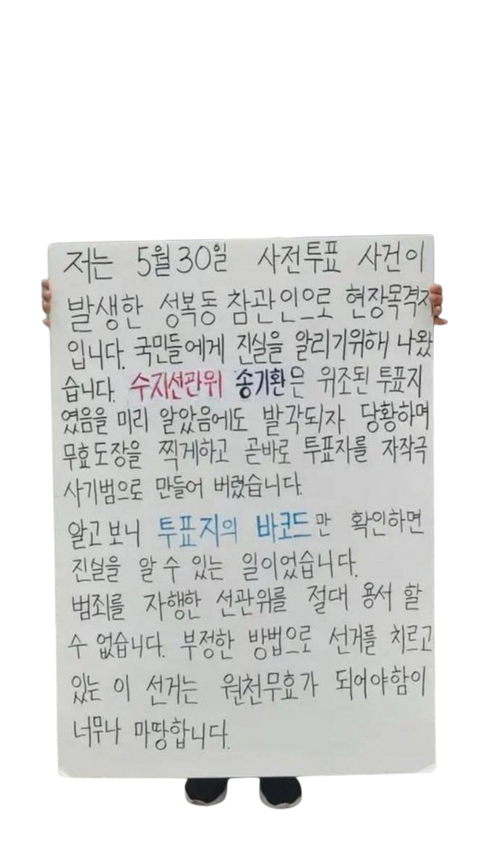 저는 5월30일 사전투표 사건이
발생한 성복동 참관인으로 현장목격자
입니다. 국민들에게 진실을 알리기위해 나왔
습니다. 수지선관위 송기환은 위조된 투표지
였음을 미리 알았음에도 발각되자 당황하며
무효도장을 찍게하고 곧바로 투표자를 자작극
사기범으로 만들어 버렸습니다.
알고보니 투표지의 바코드만 확인하면
진실을 알 수 있는 일이었습니다.
범죄를 자행한 선관위를 절대 용서 할
수 없습니다. 부정한 방법으로 선거를 치르고
있는 이 선거는 원천무효가 되어야함이
너무나 마땅합니다.